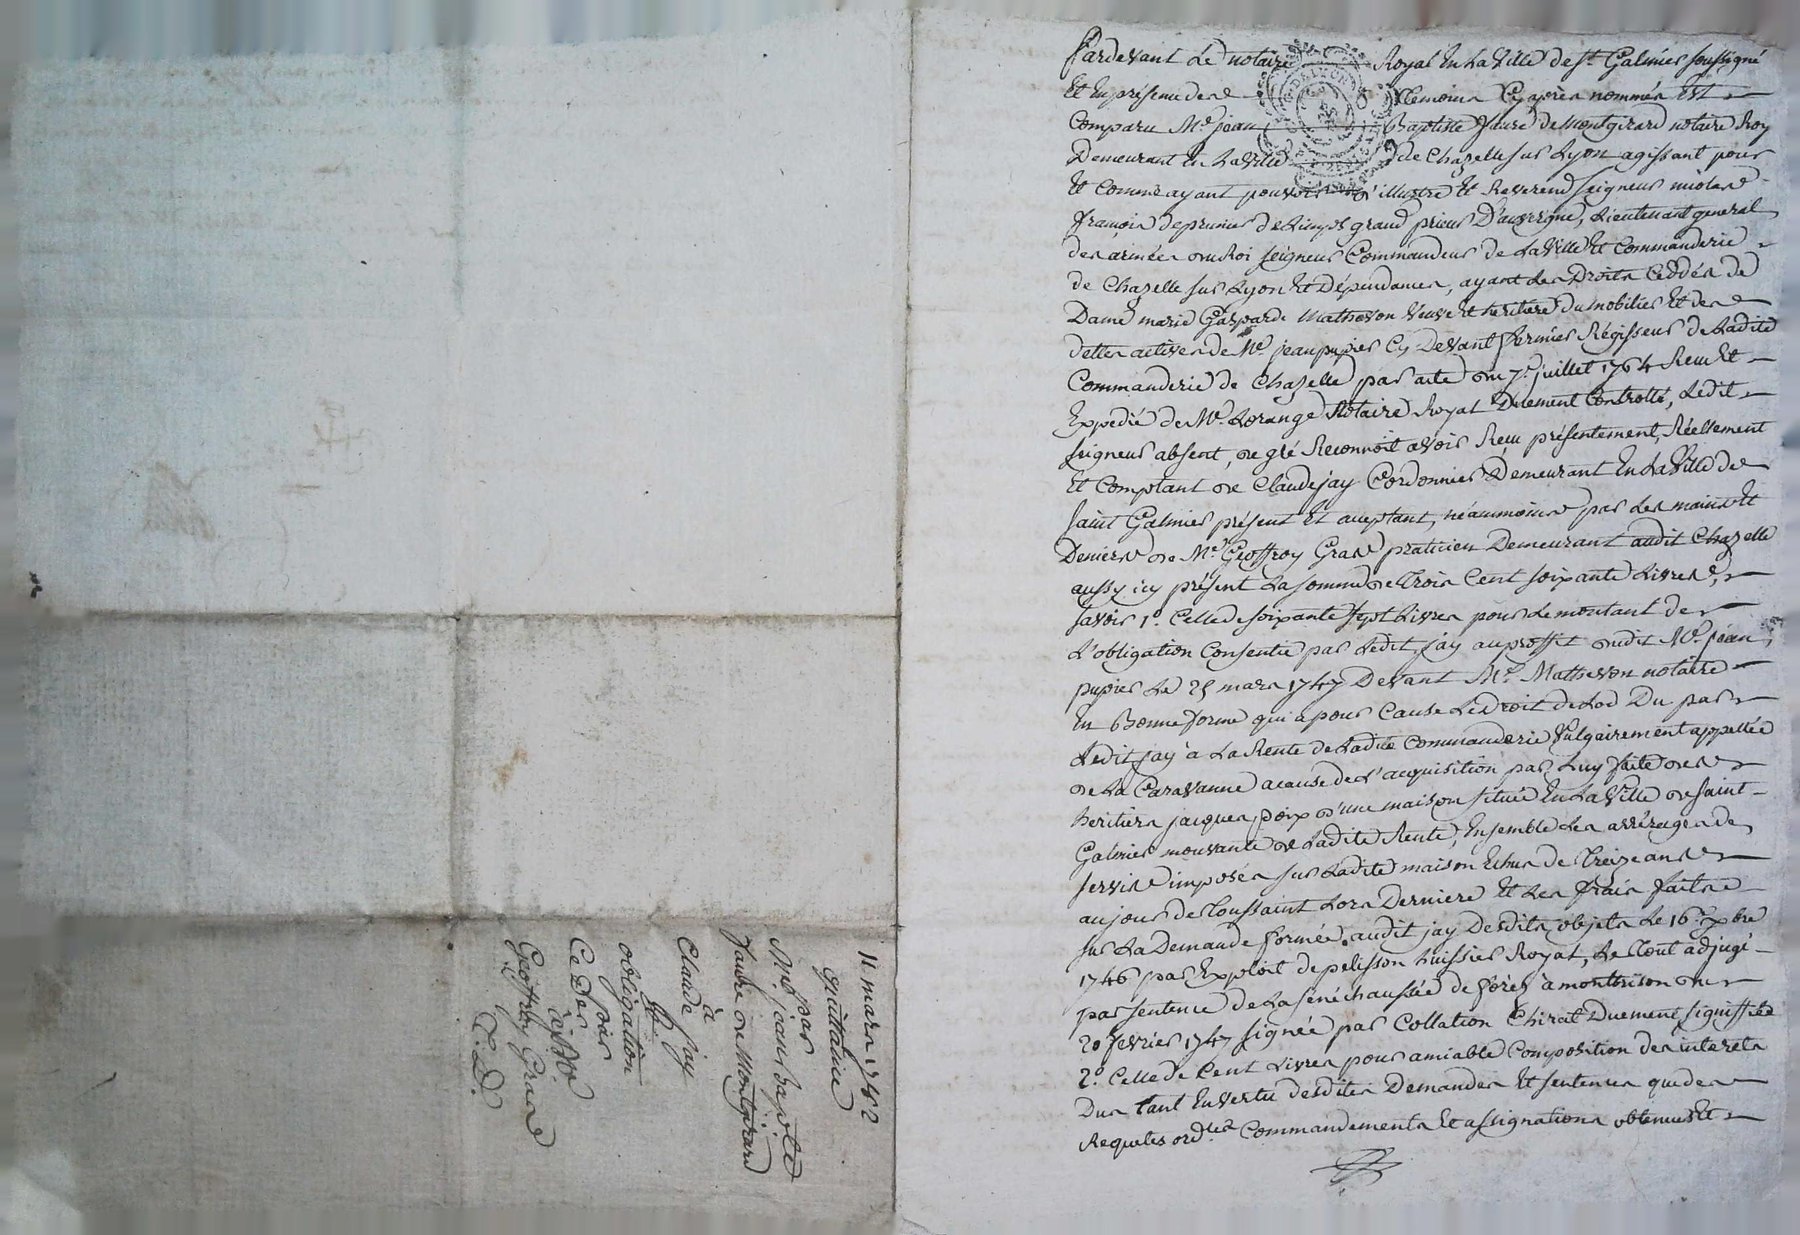 Pardevant Le notaire Royal En La Ville de St. Galmier soussigné
Et En présence des temoins Cy après nommés Est
Comparu Me. jean Baptiste faure De Montgirard notaire Roy
Demeurant En La Ville de Chazelle sur Lyon agissant pour
Et Comme ayant pouvoir d'illustre Et Reverend seigneur
françois de prunier de Lemps grand prieur D'auvergne, Lieutenant general
des armées du Roi seigneur Commandeur de La Ville Et Commanderie
de Chazelle sur Lyon Et Dépendances, ayant Les Droits Ceddés de
Dame marie Gasparde Mathevon Veuve Et heritiere Du mobilier Et des
dettes actives de Me. jean pupier Cy Devant fermier Régisseur de Ladite
Commanderie de Chazelle par acte du 7e. juillet 1764 Reçu Et
Expedié de Me. Lorange Notaire Royal Duement Controllé, Ledit
seigneur absent, de gré Reconnoit avoir Reçu présentement, Réellement
Et Comptant de Claude jay Cordonnier Demeurant En La Ville de
saint Galmier présent Et acceptant, néanmoins par Les mains Et
Deniers de Me. Geoffroy Gras praticien Demeurant audit Chazelle
aussy icy présent La somme de Trois Cent soixante Livres,
savoir 1°. Celle de soixante sept Livres pour Le montant de
L'obligation Consentie par Ledit jay au proffit dudit Me. jean
pupier Le 25 mars 1747 Devant Me. Mathevon notaire
En Bonne forme qui a pour Cause Le Droit de Lod Du par
Ledit jay à La Rente de Ladite Commanderie Vulgairement appellée
de La Caravanne a cause de L'acquisition par Luy faite des
heritiers jacques poix d'une maison située En La Ville de saint
Galmier mouvante de Ladite Rente, Ensemble Les arrérages de
servis imposés sur Ladite maison Echus de Treize ans
au jour de Toussaint Lors Derniere Et Les frais faits
sur La Demande formée audit jay Desdits objets Le 16e. xbre
1746 par Exploit de pelisson huissier Royal, Le Tout adjugé
par sentence de La sénéchaussée de forez à montbrison du
20 fevrier 1747 signée par Collation Chirat Duement signiffiée
2°. Celle de Cent Livres pour amiable Composition des interets
Dus tant En Vertu desdites Demandes Et sentences que des
Requetes ordres Commandements Et assignations obtenues Et
11 mars 1782
quittance
par
Me. jean baptiste
faure de Montgirard
à
Claude jay
obligation
Ce Des
à Me.
Geoffroy Gras